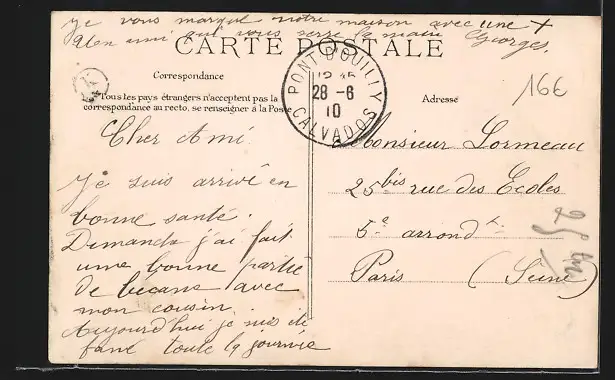 je vous marque notre maison avec une +
Un ami qui vous serre la main Georges.
CARTE POSTALE
Correspondance
Tous les pays étrangers n'acceptent pas la
correspondance au recto, se renseigner à la Poste
PONT-D'OUILLY
28 -6
10
CALVADOS
Adresse
16€
Cher Ami
Je suis arrivé en
bonne santé.
Dimanche j'ai fait
une bonne partie
de bécane avec
mon cousin.
Aujourd'hui je suis de
fane toute la journée
Monsieur Lormeau
25 bis rue des Ecoles
5e arrondt
Paris (Seine)